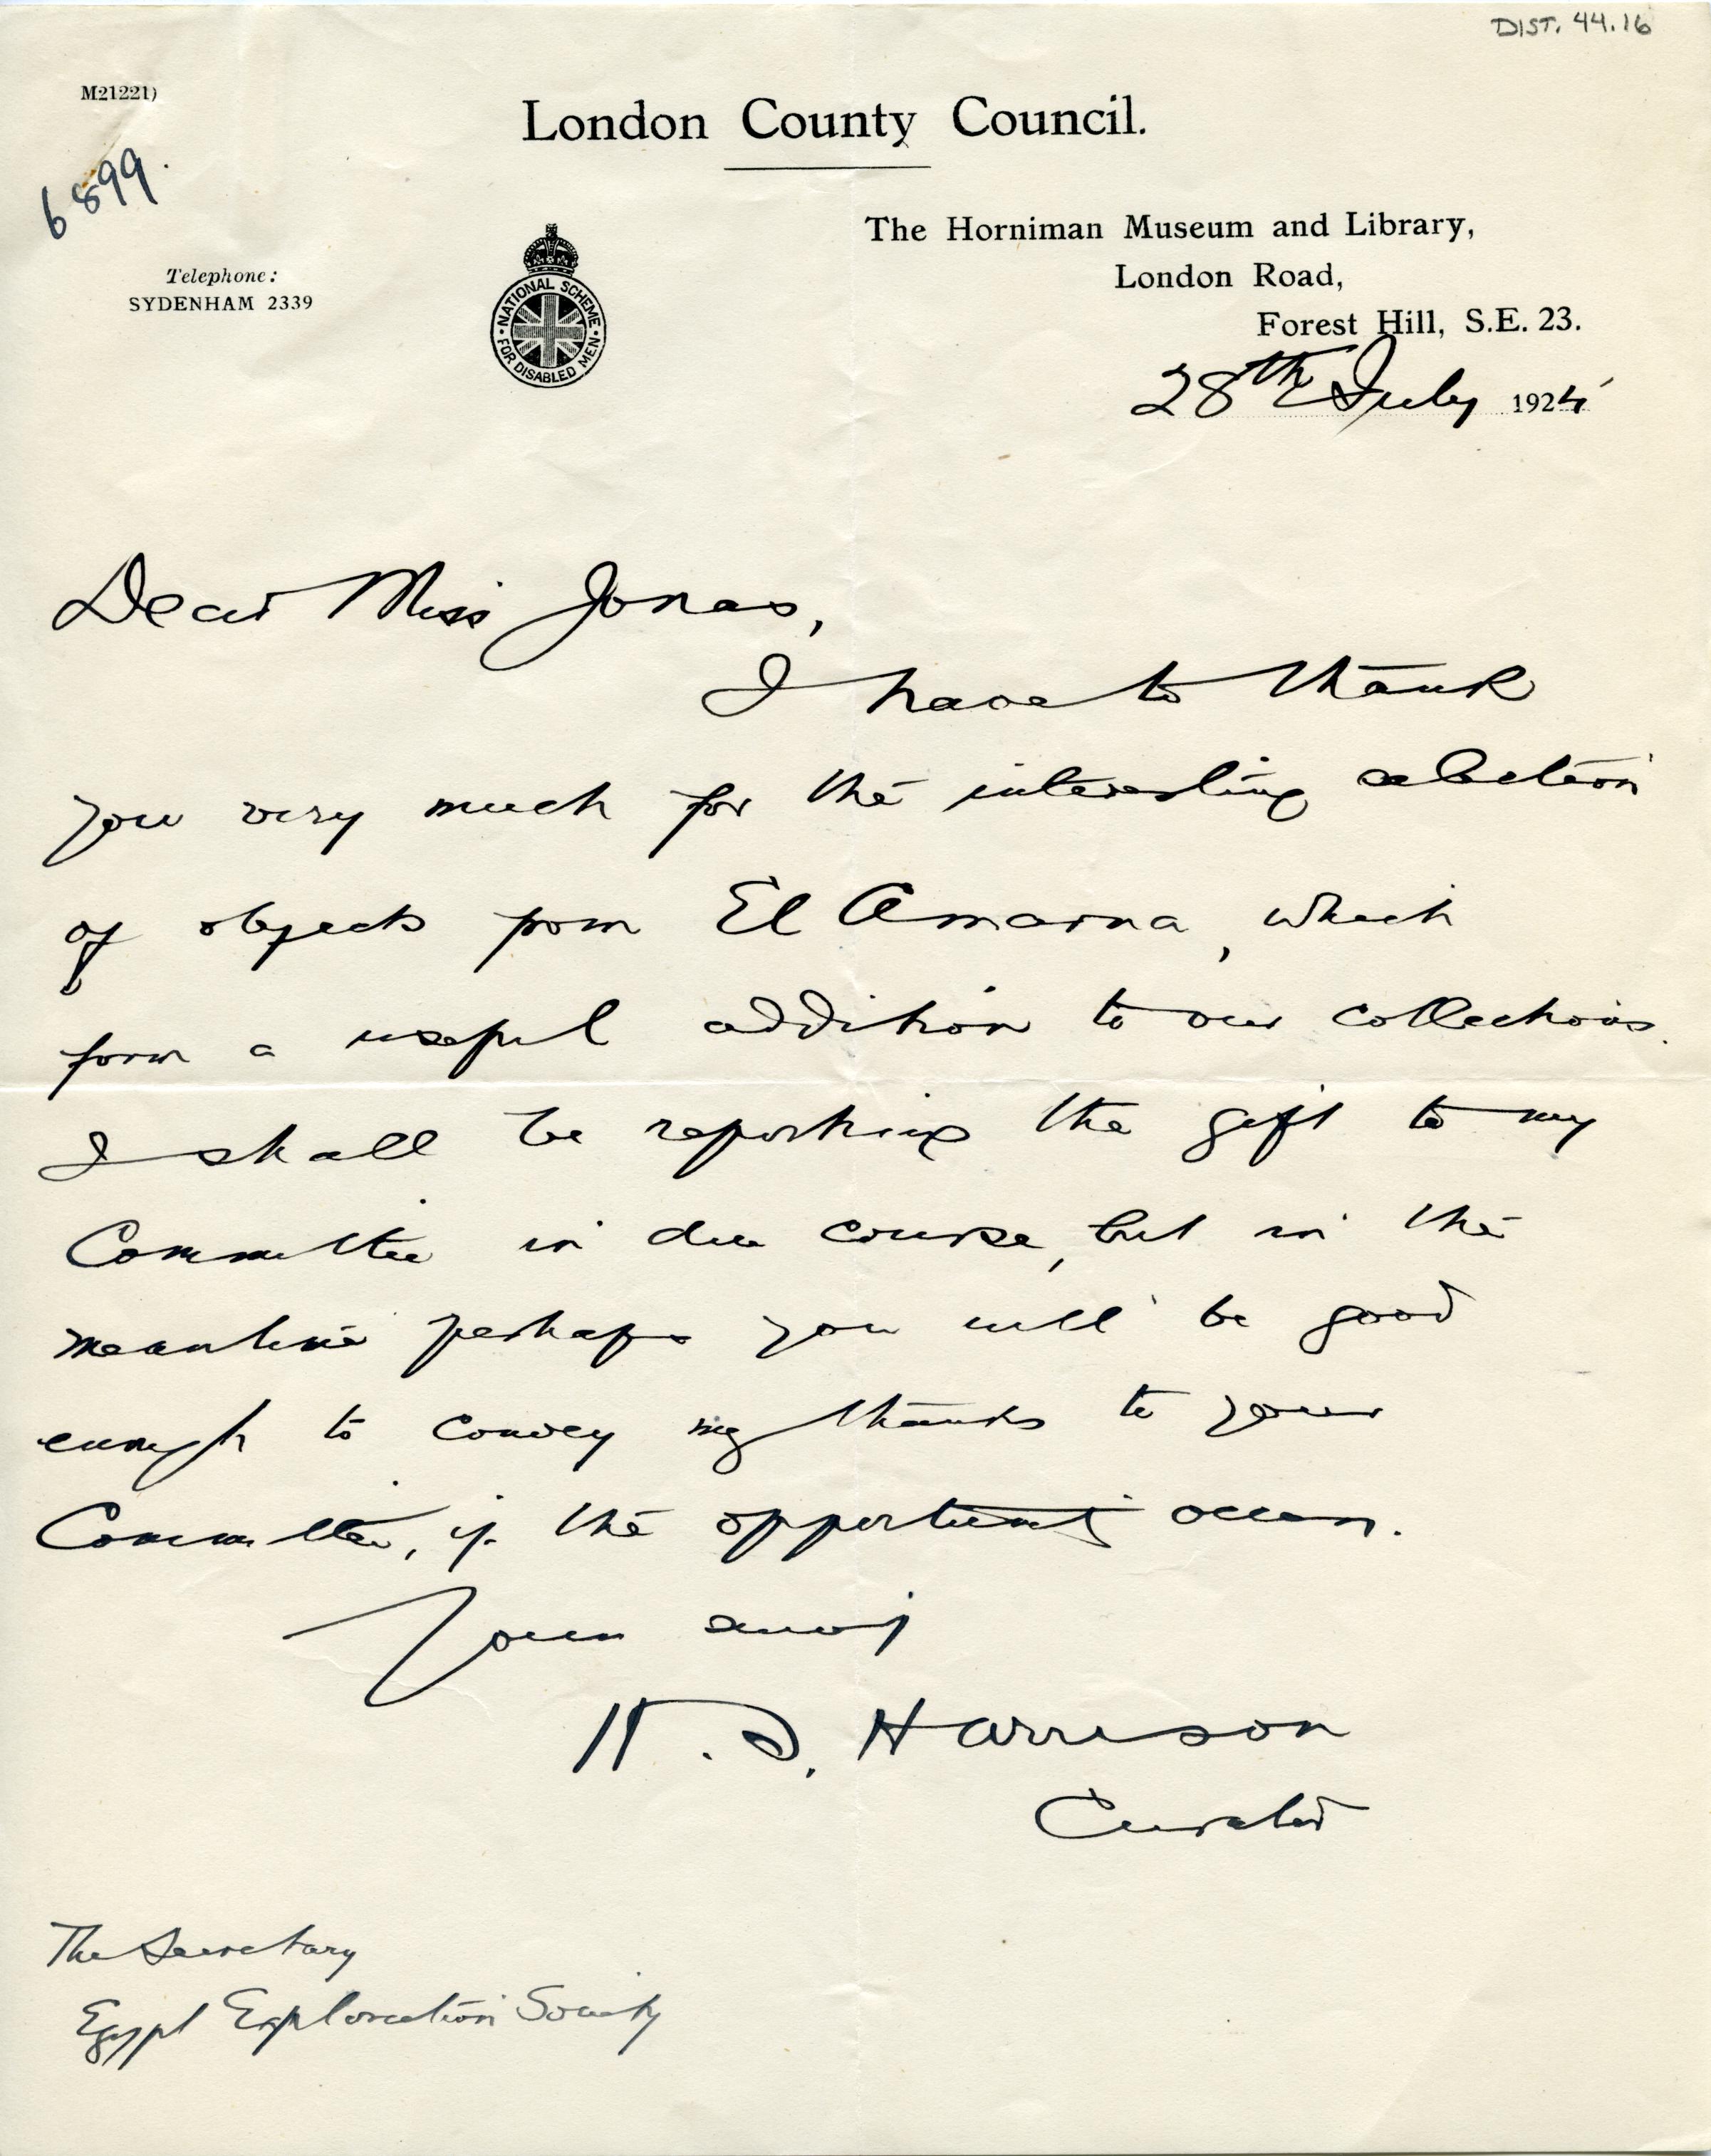 DIST. 44.16
M21221)
London County Council.
6899.
The Horniman Museum and Library,
London Road,
Forest Hill, S.E. 23.
Telephone:
SYDENHAM 2339
NATIONAL SCHEME
FOR DISABLED MEN
28th July 1924
Dear Miss Jonas,
I have to thank
you very much for the interesting selection
of objects from El Amarna, which
form a useful addition to our collections.
I shall be reporting the gift to my
Committee in due course, but in the
meantime perhaps you will be good
enough to convey my thanks to your
Committee, if the opportunity occurs.
Yours
H. S. Harrison
Curator
The Secretary
Egypt Exploration Society